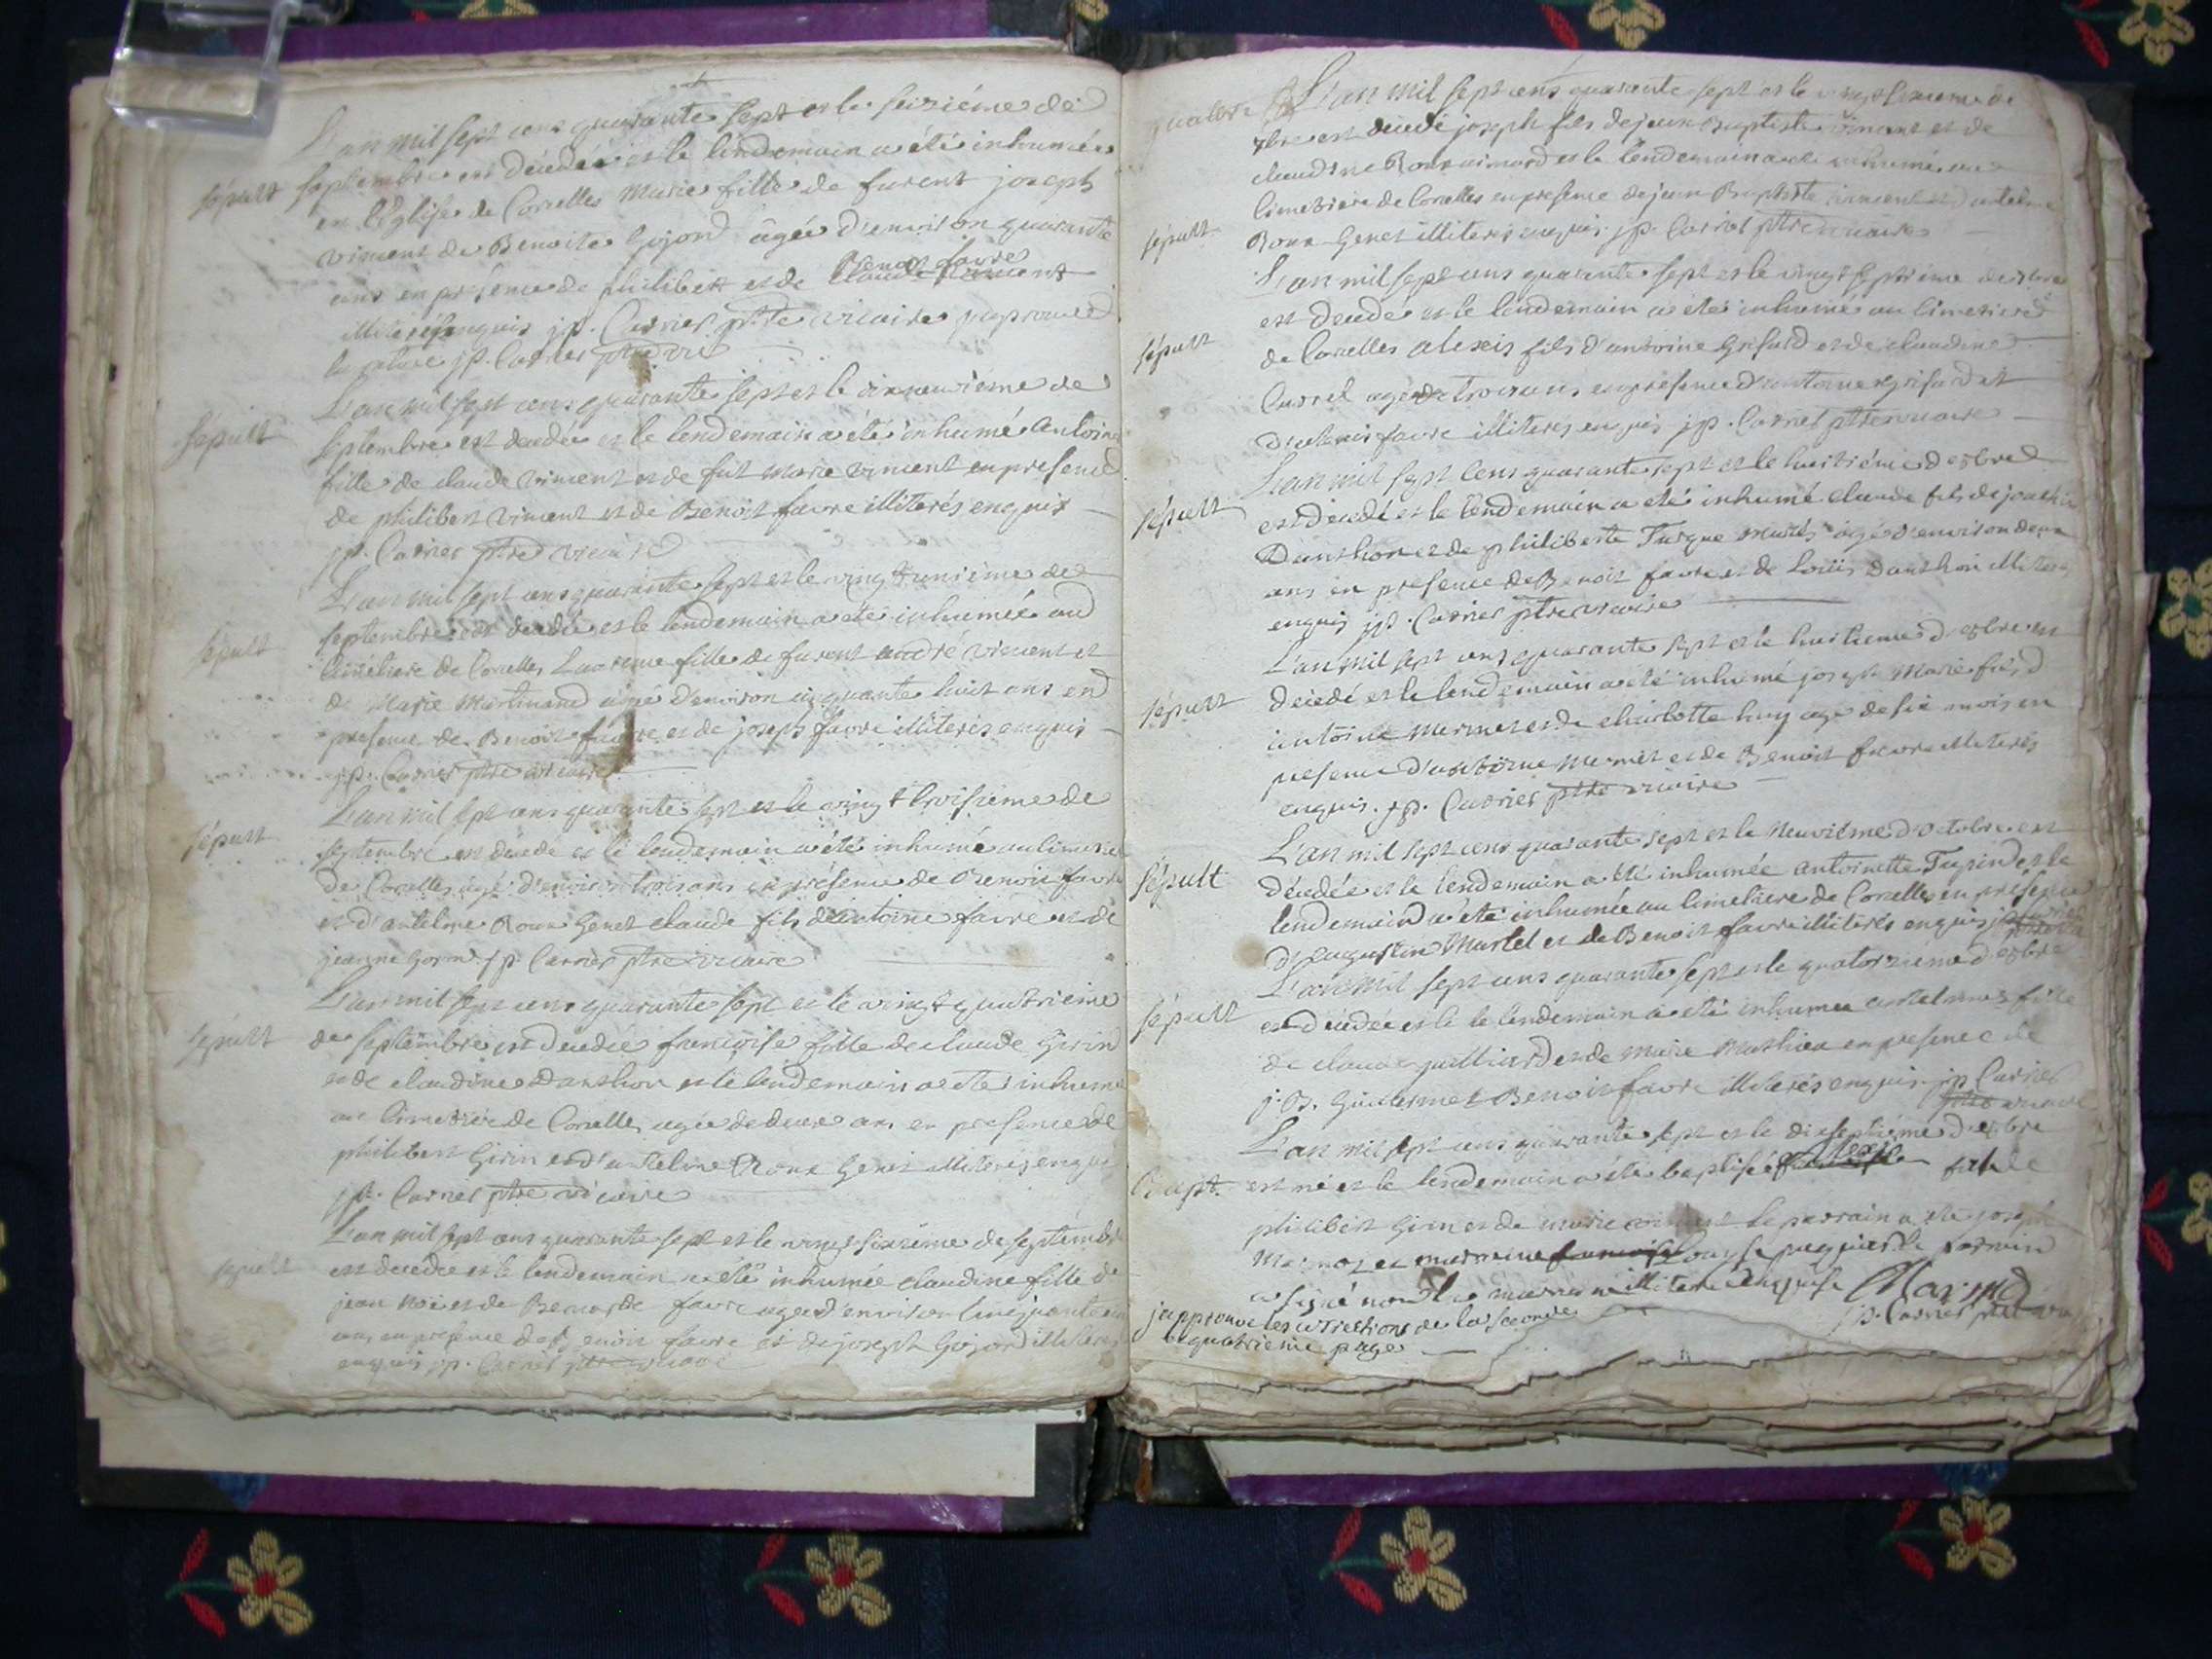 L'an mil sept cens quarante sept et le seizième de
sépult septembre est décédée et le lendemain a été inhumée
en l'Eglise de Corcelles Marie fille de furent joseph
vincent et de Benoite Gojon âgée d'environ quarante
ans en présence de philibert et de Benoit favre
illiterés enquis jp. Carrier ptre vicaire japrouve
la rature jp. Carrier ptre vic
L'an mil sept cens quarante sept et le dixneuvième de
sépult septembre est decedée et le lendemain a été inhumé Antoine
fille de claude vincent et de fut Marie vincent en presence
de philibert vincent et de Benoit favre illiterés enquis
jp. Carrier ptre vicaire
L'an mil sept cens quarante sept et le vingt unième de
sépult septembre est decedée et le lendemain a été inhumée au
cimetiere de Corcelles fille de furent andré vincent et
de Marie Martinand agée d'environ cinquante huit ans en
presence de Benoit favre et de joseph favre illiterés enquis
jp. Carrier ptre vicaire
L'an mil sept cens quarante sept et le vingt troisieme de
sépult septembre est décédé et le lendemain a été inhumé au cimetiere
de Corcelles agé d'environ trois ans en présence de Benoit favre
et d'antelme Roux Genet claude fils d'antoine favre et de
jeanne Gorin jp. Carrier ptre vicaire
L'an mil sept cens quarante sept et le vingt quatrieme
sépult de septembre est decedée francoise fille de claude Girin
et de claudine Danthon et le lendemain a été inhumée
au cimetiere de Corcelles agée de deux ans en presence de
philibert Girin et d'antelme Roux Genet illiterés enquis
jp. Carrier ptre vicaire
L'an mil sept cens quarante sept et le vingt sixième de septembre
sépult est decedée et le lendemain a été inhumée claudine fille de
jean Noé et de Bernarde favre agée d'environ cinquante
ans en presence de Benoit favre et de joseph Gojon illiterés
enquis jp. Carrier ptre vicaire
quatore L'an mil sept cens quarante sept et le vingt sixieme de
7bre est décédé joseph fils de jean Baptiste vincent et de
claudine Roux et le lendemain a été inhumé au
cimetiere de Corcelles en presence de jean Baptiste vincent et d'antelme
sépult Roux Genet illiterés enquis jp. Carrier ptre vicaire
L'an mil sept cens quarante sept et le vingt septième de 7bre
sépult est decedé et le lendemain a été inhumé au cimetiere
de Corcelles alexis fils d'antoine Grifard et de claudine
Curret agé de trois ans en presence d'antoine grifard et
favre illiteres enquis jp. Carrier ptre vicaire
L'an mil sept cens quarante sept et le huitiéme d'8bre
sépult est décedé et le lendemain a été inhumé claude fils de joachim
Danthon et de philiberte Turque mariés agé d'environ deux
ans en presence de Benoit favre et de Louis Danthon illiteres
enquis jp. Carrier ptre vicaire
L'an mil sept cens quarante sept et le huitieme d'8bre est
sépult décedé et le lendemain a été inhumé joseph Marie fils d
antoine Mermet et de charlotte huy agé de six mois en
presence d'antoine Mermet et de Benoit favre illiterés
enquis. jp. Carrier ptre vicaire
L'an mil sept cens quarante sept et le Neuvième d'octobre est
sépult décédée et le lendemain a été inhumée antoinette Tupin et le
lendemain a été inhumée au cimetiere de Corcelles en presence
d'augustin Martel et de Benoit favre illiterés enquis jp Carrier
ptre vic
L'an mil sept cens quarante sept et le quatorzième d'8bre
sépult est decedée et le lendemain a été inhumée antelme fille
de claude galliard et de Marie Mathieu en presence de
j. B. Guillermet Benoit favre illiterés enquis jp Carrier
ptre vicaire
L'an mil sept cens quarante sept et le dixseptième d'8bre
Bapt. est né et le lendemain a été baptisé alexis fils de
philibert Girin et de marie vincent le parrain a été joseph
et marraine Louyse le parrain
a signé non la marraine illiterée enquise Marinod
jp. Carrier ptre vic
japprouve les corrections de la seconde
et quatrieme page